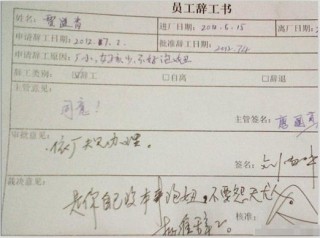 员工辞工书
姓名: 进厂日期: 离厂日
申请辞工日期: 2012.7.2. 批准辞工日期: 2012.7/4
申请辞工原因: 厂小,女孩少,不好泡妞
辞工类别: 辞工 自离 辞退
主管意见:
同意!
主管签名:
审批意见:
依厂规办理。
签名:
裁决意见:
是你自己没本事泡妞,不要怨天尤人
批准辞工。 核准: